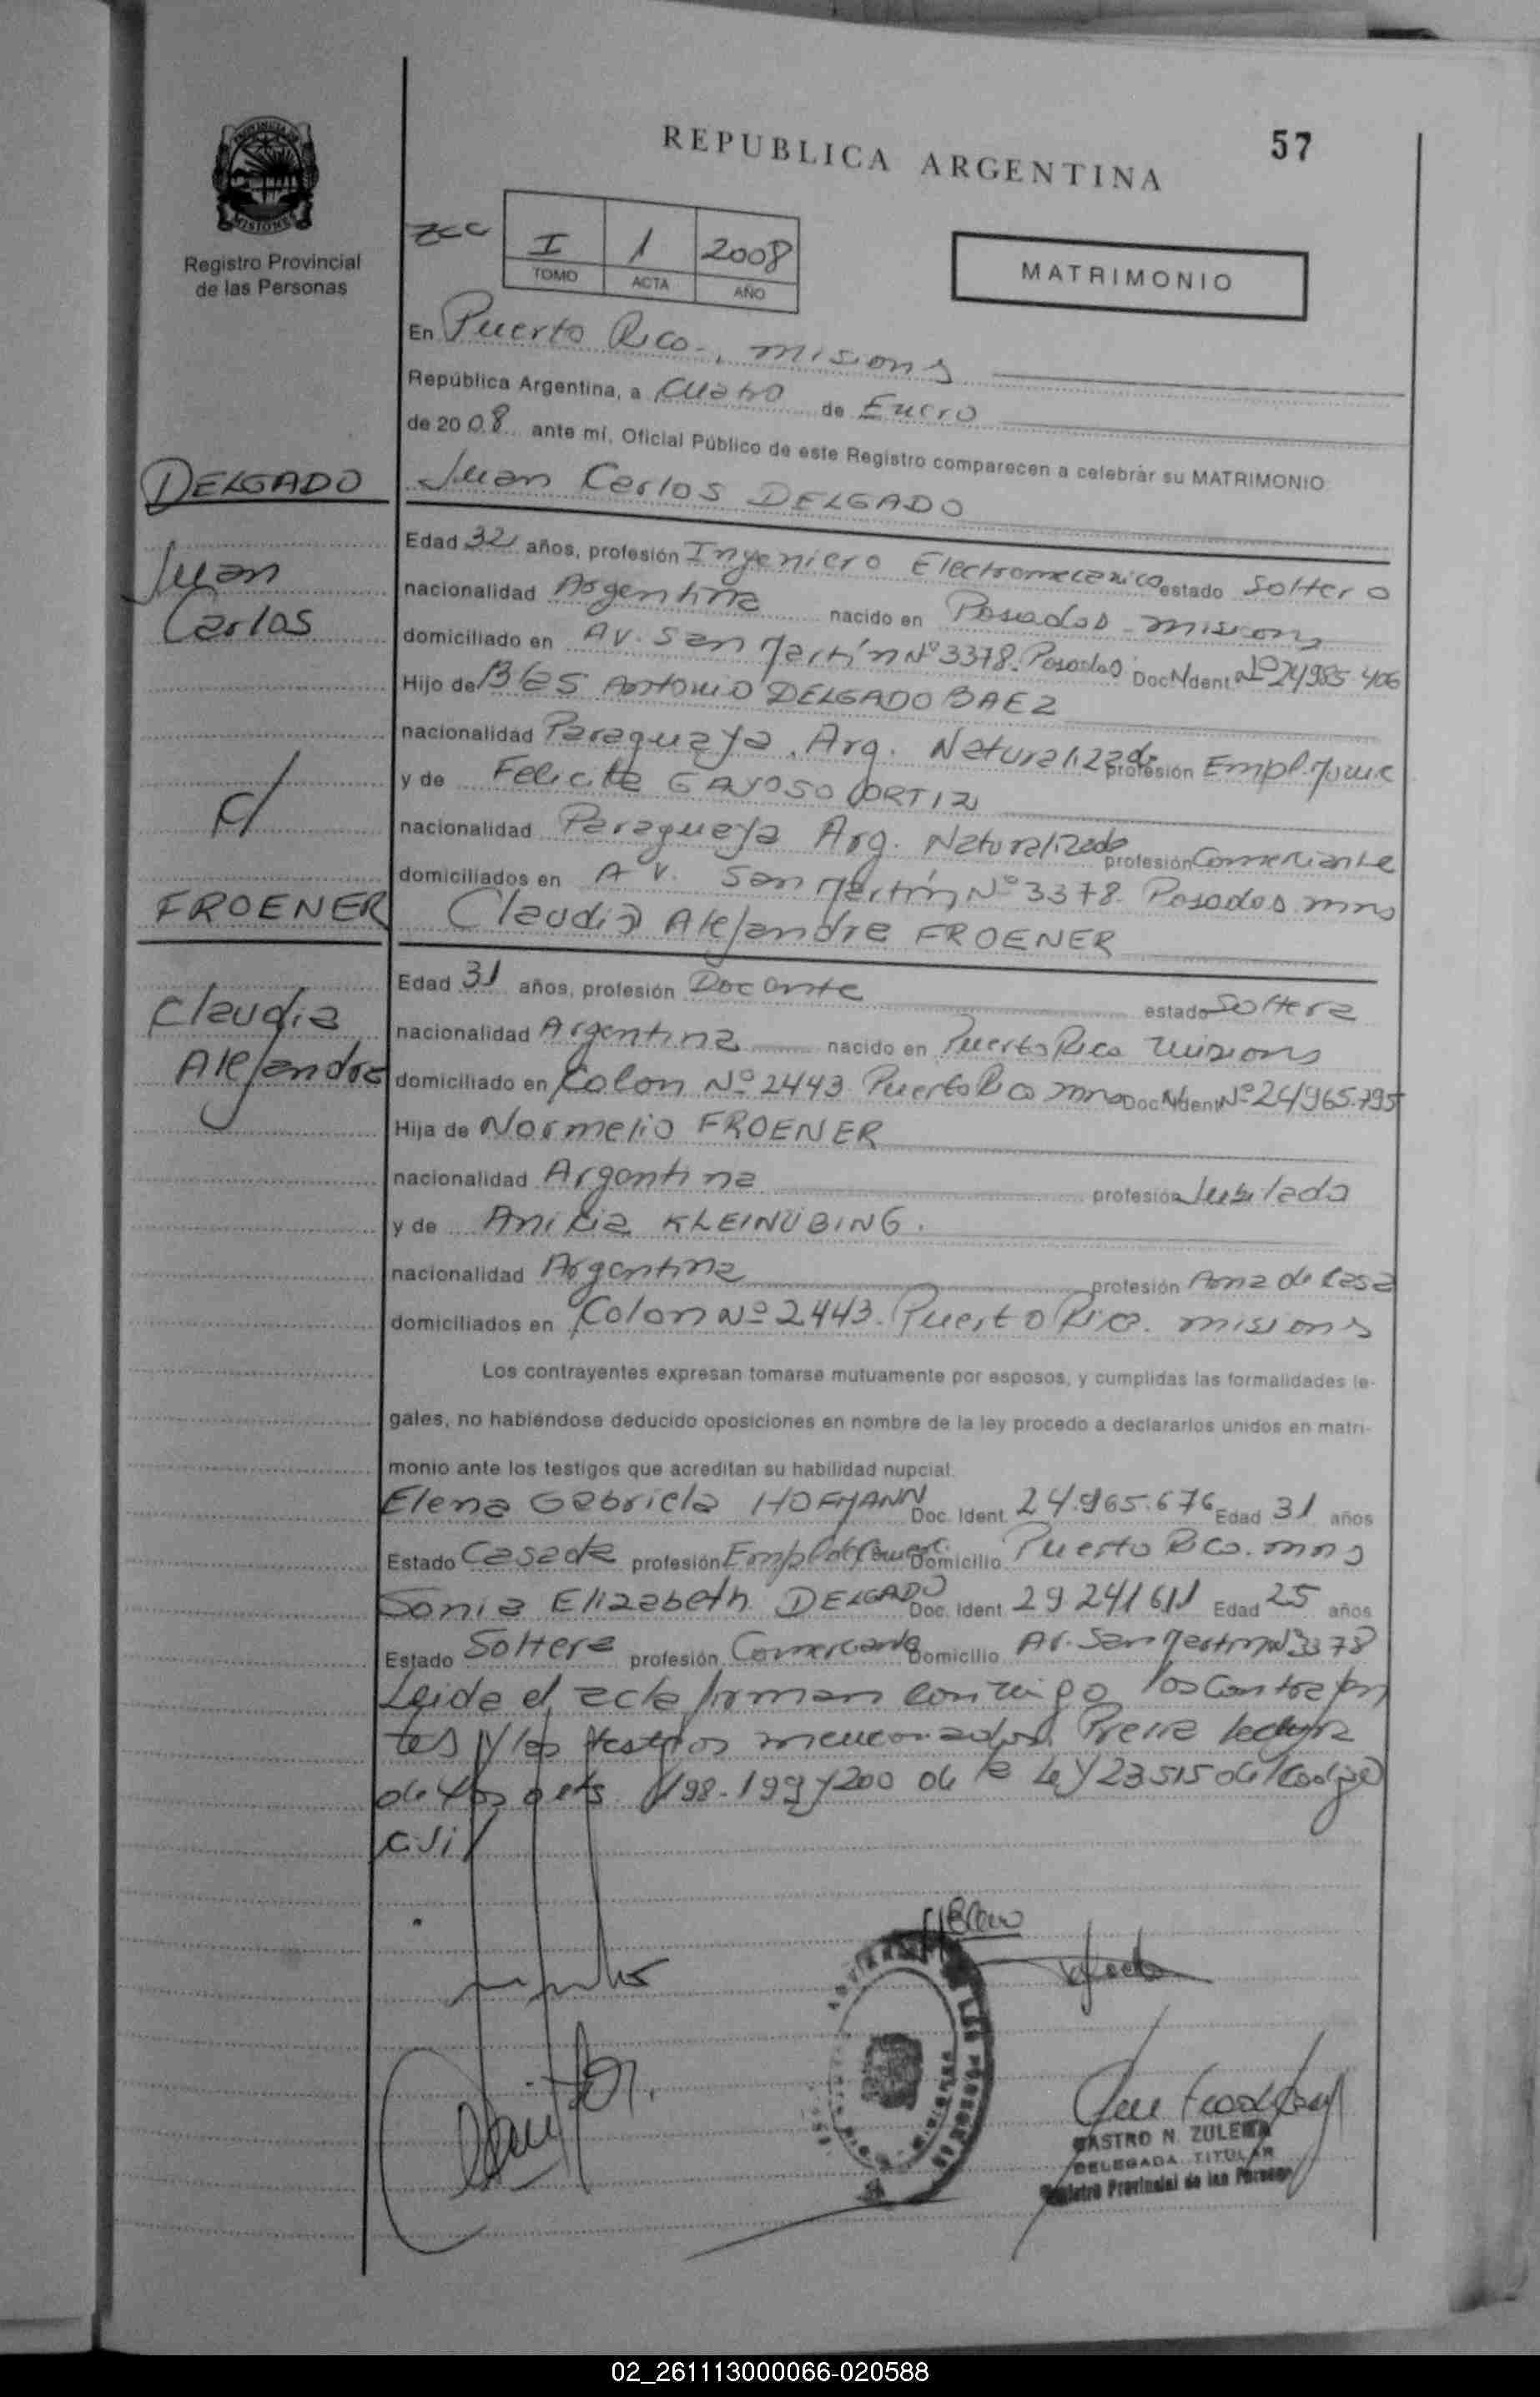 57
REPUBLICA ARGENTINA
PROVINCIA DE
MISIONES
Registro Provincial
de las Personas
I 1 2008
TOMO ACTA AÑO
MATRIMONIO
En Puerto Rico., misiones
República Argentina, a cuatro de Enero
de 2008 ante mí, Oficial Público de este Registro comparecen a celebrar su MATRIMONIO
DELGADO
Juan Carlos DELGADO
Juan
Carlos
Edad 32 años, profesión Ingeniero Electromecanico estado soltero
nacionalidad Argentina nacido en Posadas - misiones
domiciliado en Av. San Martín Nº 3378. Posadas Doc. Ident Nº 24985.406
Hijo de Blas Antonio DELGADO BAEZ
nacionalidad Paraguaya. Arg. Naturalizado profesión Empl.
y de Felicita GAYOSO ORTIZ
c/
nacionalidad Paraguaya Arg. Naturalizada profesión Comerciante
domiciliados en Av. San Martín Nº 3378. Posadas mns
FROENER
Claudia Alejandra FROENER
Claudia
Alejandra
Edad 31 años, profesión Docente estado Soltera
nacionalidad Argentina nacido en Puerto Rico misiones
domiciliado en Colon Nº 2443 Puerto Rico mns Doc. Ident Nº 24965.795
Hija de Normelio FROENER
nacionalidad Argentina profesión Jubilado
y de KLEINUBING.
nacionalidad Argentina profesión Ama de casa
domiciliados en Colon Nº 2443. Puerto Rico. misiones
Los contrayentes expresan tomarse mutuamente por esposos, y cumplidas las formalidades le-
gales, no habiéndose deducido oposiciones en nombre de la ley procedo a declararlos unidos en matri-
monio ante los testigos que acreditan su habilidad nupcial
Elena Gabriela HOFMANN Doc. Ident. 24.965.676 Edad 31 años
Estado Casada profesión Empl. de Domicilio Puerto Rico. mns
Sonia Elizabeth DELGADO Doc. Ident 29.241611 Edad 25 años
Estado Soltera profesión Comerciante Domicilio Av. San Martin Nº 3378
Leida el acta firman conmigo los contrayen
tes y los testigos mencionados. Previa lectura
de los arts. 198-199 y 200 de la Ley 23515 del Codigo
Civil
CASTRO N. ZULEMA
DELEGADA TITULAR
Registro Provincial de las Personas
02_261113000066-020588